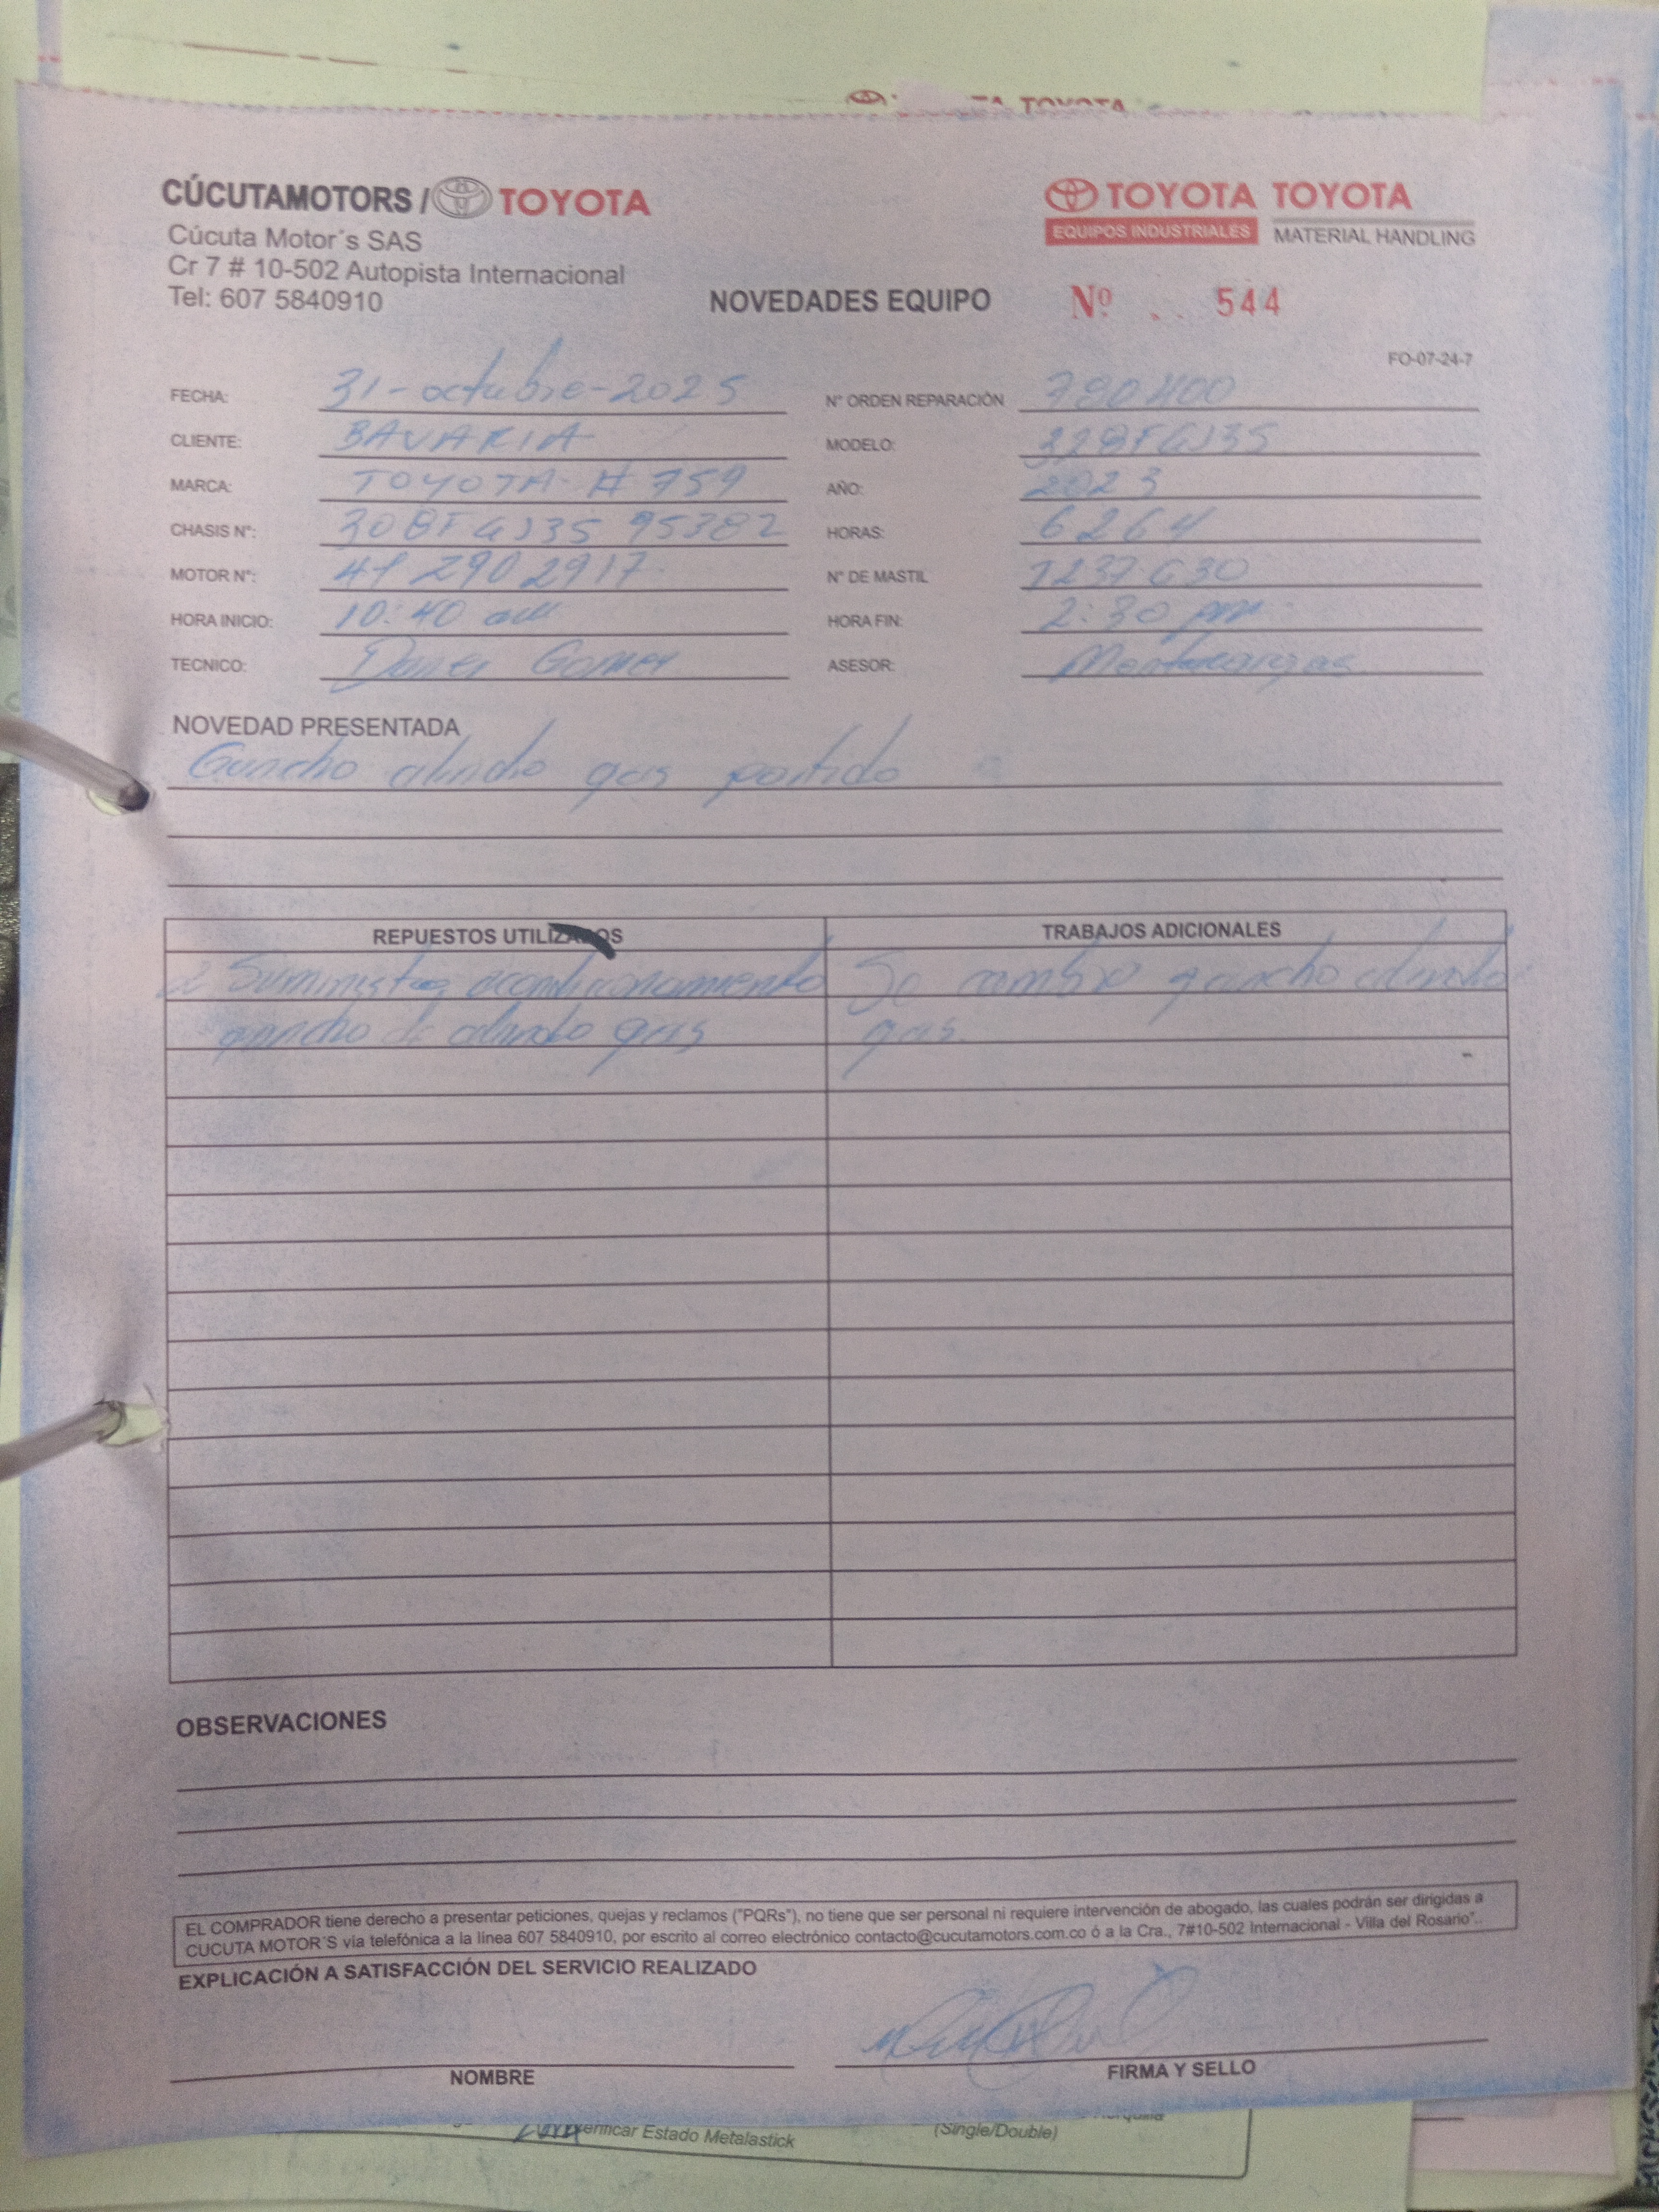 TOYOTA
CÚCUTAMOTORS / TOYOTA
Cúcuta Motor´s SAS
Cr 7 # 10-502 Autopista Internacional
Tel: 607 5840910
TOYOTA TOYOTA
EQUIPOS INDUSTRIALES MATERIAL HANDLING
NOVEDADES EQUIPO Nº 544
FO-07-24-7
FECHA: 31-octubre-2025 N° ORDEN REPARACIÓN 790400
CLIENTE: BAVARIA MODELO:
MARCA: TOYOTA # 759 AÑO: 2023
CHASIS N°: 308FGJ35 95382 HORAS: 6264
MOTOR N°: 41 Z90 2917 N° DE MASTIL 1237630
HORA INICIO: 10:40 am HORA FIN: 2:30 pm
TECNICO: Gomez ASESOR: Montacargas
NOVEDAD PRESENTADA
Gancho gas partido
REPUESTOS UTILIZADOS TRABAJOS ADICIONALES
acondicionamiento Se cambio gancho
gancho de gas gas
OBSERVACIONES
EL COMPRADOR tiene derecho a presentar peticiones, quejas y reclamos ("PQRs"), no tiene que ser personal ni requiere intervención de abogado, las cuales podrán ser dirigidas a
CUCUTA MOTOR´S vía telefónica a la línea 607 5840910, por escrito al correo electrónico contacto@cucutamotors.com.co ó a la Cra., 7#10-502 Internacional - Villa del Rosario"..
EXPLICACIÓN A SATISFACCIÓN DEL SERVICIO REALIZADO
NOMBRE FIRMA Y SELLO
Estado Metalastick (Single/Double)